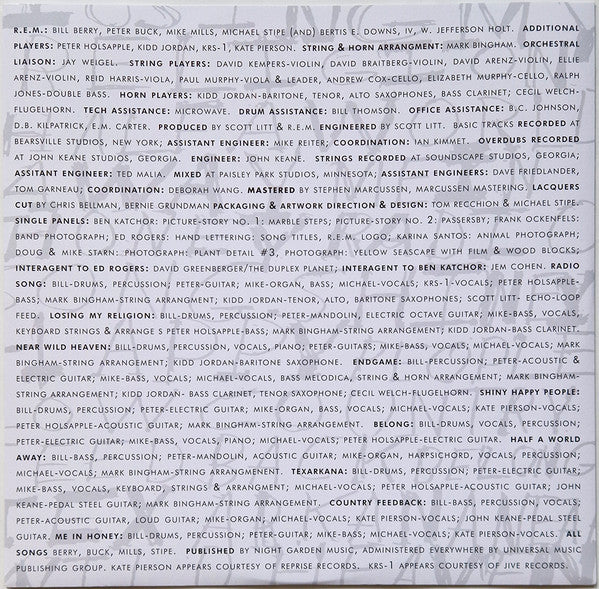 R.E.M.: BILL BERRY, PETER BUCK, MIKE MILLS, MICHAEL STIPE (AND) BERTIS E. DOWNS, IV, W. JEFFERSON HOLT. ADDITIONAL
PLAYERS: PETER HOLSAPPLE, KIDD JORDAN, KRS-1, KATE PIERSON. STRING & HORN ARRANGEMENT: MARK BINGHAM. ORCHESTRAL
LIAISON: JAY WEIGEL. STRING PLAYERS: DAVID KEMPERS-VIOLIN, DAVID BRAITBERG-VIOLIN, DAVID ARENZ-VIOLIN, ELLIE
ARENZ-VIOLIN, REID HARRIS-VIOLA, PAUL MURPHY-VIOLA & LEADER, ANDREW COX-CELLO, ELIZABETH MURPHY-CELLO, RALPH
JONES-DOUBLE BASS. HORN PLAYERS: KIDD JORDAN-BARITONE, TENOR, ALTO SAXOPHONES, BASS CLARINET; CECIL WELCH-
FLUGELHORN. TECH ASSISTANCE: MICROWAVE. DRUM ASSISTANCE: BILL THOMSON. OFFICE ASSISTANCE: B.C. JOHNSON,
D.B. KILPATRICK, E.M. CARTER. PRODUCED BY SCOTT LITT & R.E.M. ENGINEERED BY SCOTT LITT. BASIC TRACKS RECORDED AT
BEARSVILLE STUDIOS, NEW YORK; ASSISTANT ENGINEER; MIKE REITER; COORDINATION: IAN KIMMET. OVERDUBS RECORDED
AT JOHN KEANE STUDIOS, GEORGIA. ENGINEER: JOHN KEANE. STRINGS RECORDED AT SOUNDSCAPE STUDIOS, GEORGIA;
ASSITANT ENGINEER: TED MALIA. MIXED AT PAISLEY PARK STUDIOS, MINNESOTA; ASSISTANT ENGINEERS: DAVE FRIEDLANDER,
TOM GARNEAU; COORDINATION: DEBORAH WANG. MASTERED BY STEPHEN MARCUSSEN, MARCUSSEN MASTERING. LACQUERS
CUT BY CHRIS BELLMAN, BERNIE GRUNDMAN PACKAGING & ARTWORK DIRECTION & DESIGN: TOM RECCHION & MICHAEL STIPE.
SINGLE PANELS: BEN KATCHOR: PICTURE-STORY NO. 1: MARBLE STEPS; PICTURE-STORY NO. 2: PASSERSBY; FRANK OCKENFELS:
BAND PHOTOGRAPH; ED ROGERS: HAND LETTERING: SONG TITLES, R.E.M. LOGO; KARINA SANTOS: ANIMAL PHOTOGRAPH;
DOUG & MIKE STARN: PHOTOGRAPH: PLANT DETAIL #3, PHOTOGRAPH: YELLOW SEASCAPE WITH FILM & WOOD BLOCKS;
INTERAGENT TO ED ROGERS: DAVID GREENBERGER/THE DUPLEX PLANET; INTERAGENT TO BEN KATCHOR: JEM COHEN. RADIO
SONG: BILL-DRUMS, PERCUSSION; PETER-GUITAR; MIKE-ORGAN, BASS; MICHAEL-VOCALS; KRS-1-VOCALS; PETER HOLSAPPLE-
BASS; MARK BINGHAM-STRING ARRANGEMENT; KIDD JORDAN-TENOR, ALTO, BARITONE SAXOPHONES; SCOTT LITT- ECHO-LOOP
FEED. LOSING MY RELIGION: BILL-DRUMS, PERCUSSION; PETER-MANDOLIN, ELECTRIC OCTAVE GUITAR; MIKE-BASS, VOCALS,
KEYBOARD STRINGS & ARRANGE S PETER HOLSAPPLE-BASS; MARK BINGHAM-STRING ARRANGEMENT; KIDD JORDAN-BASS CLARINET.
NEAR WILD HEAVEN: BILL-DRUMS, PERCUSSION, VOCALS, PIANO; PETER-GUITARS; MIKE-BASS, VOCALS; MICHAEL-VOCALS; MARK
BINGHAM-STRING ARRANGEMENT; KIDD JORDAN-BARITONE SAXOPHONE. ENDGAME: BILL-PERCUSSION; PETER-ACOUSTIC &
ELECTRIC GUITAR; MIKE-BASS, VOCALS; MICHAEL-VOCALS, BASS MELODICA, STRING & HORN ARRANGEMENT; MARK BINGHAM-
STRING ARRANGEMENT; KIDD JORDAN- BASS CLARINET, TENOR SAXOPHONE; CECIL WELCH-FLUGELHORN. SHINY HAPPY PEOPLE:
BILL-DRUMS, PERCUSSION; PETER-ELECTRIC GUITAR; MIKE-ORGAN, BASS, VOCALS; MICHAEL-VOCALS; KATE PIERSON-VOCALS;
PETER HOLSAPPLE-ACOUSTIC GUITAR; MARK BINGHAM-STRING ARRANGEMENT. BELONG: BILL-DRUMS, VOCALS, PERCUSSION;
PETER-ELECTRIC GUITAR; MIKE-BASS, VOCALS, PIANO; MICHAEL-VOCALS; PETER HOLSAPPLE-ELECTRIC GUITAR. HALF A WORLD
AWAY: BILL-BASS, PERCUSSION; PETER-MANDOLIN, ACOUSTIC GUITAR; MIKE-ORGAN, HARPSICHORD, VOCALS, PERCUSSION;
MICHAEL-VOCALS; MARK BINGHAM-STRING ARRANGMENENT. TEXARKANA: BILL-DRUMS, PERCUSSION; PETER-ELECTRIC GUITAR;
MIKE-BASS, VOCALS, KEYBOARD; STRINGS & ARRANGMENT; MICHAEL-VOCALS; PETER HOLSAPPLE-ACOUSTIC GUITAR; JOHN
KEANE-PEDAL STEEL GUITAR; MARK BINGHAM-STRING ARRANGEMENT. COUNTRY FEEDBACK: BILL-BASS, PERCUSSION, VOCALS;
PETER-ACOUSTIC GUITAR, LOUD GUITAR; MIKE-ORGAN; MICHAEL-VOCALS; KATE PIERSON-VOCALS; JOHN KEANE-PEDAL STEEL
GUITAR. ME IN HONEY: BILL-DRUMS, PERCUSSION; PETER-GUITAR; MIKE-BASS; MICHAEL-VOCALS; KATE PIERSON-VOCALS. ALL
SONGS BERRY, BUCK, MILLS, STIPE. PUBLISHED BY NIGHT GARDEN MUSIC, ADMINISTERED EVERYWHERE BY UNIVERSAL MUSIC
PUBLISHING GROUP. KATE PIERSON APPEARS COURTESY OF REPRISE RECORDS. KRS-1 APPEARS COURTESY OF JIVE RECORDS.